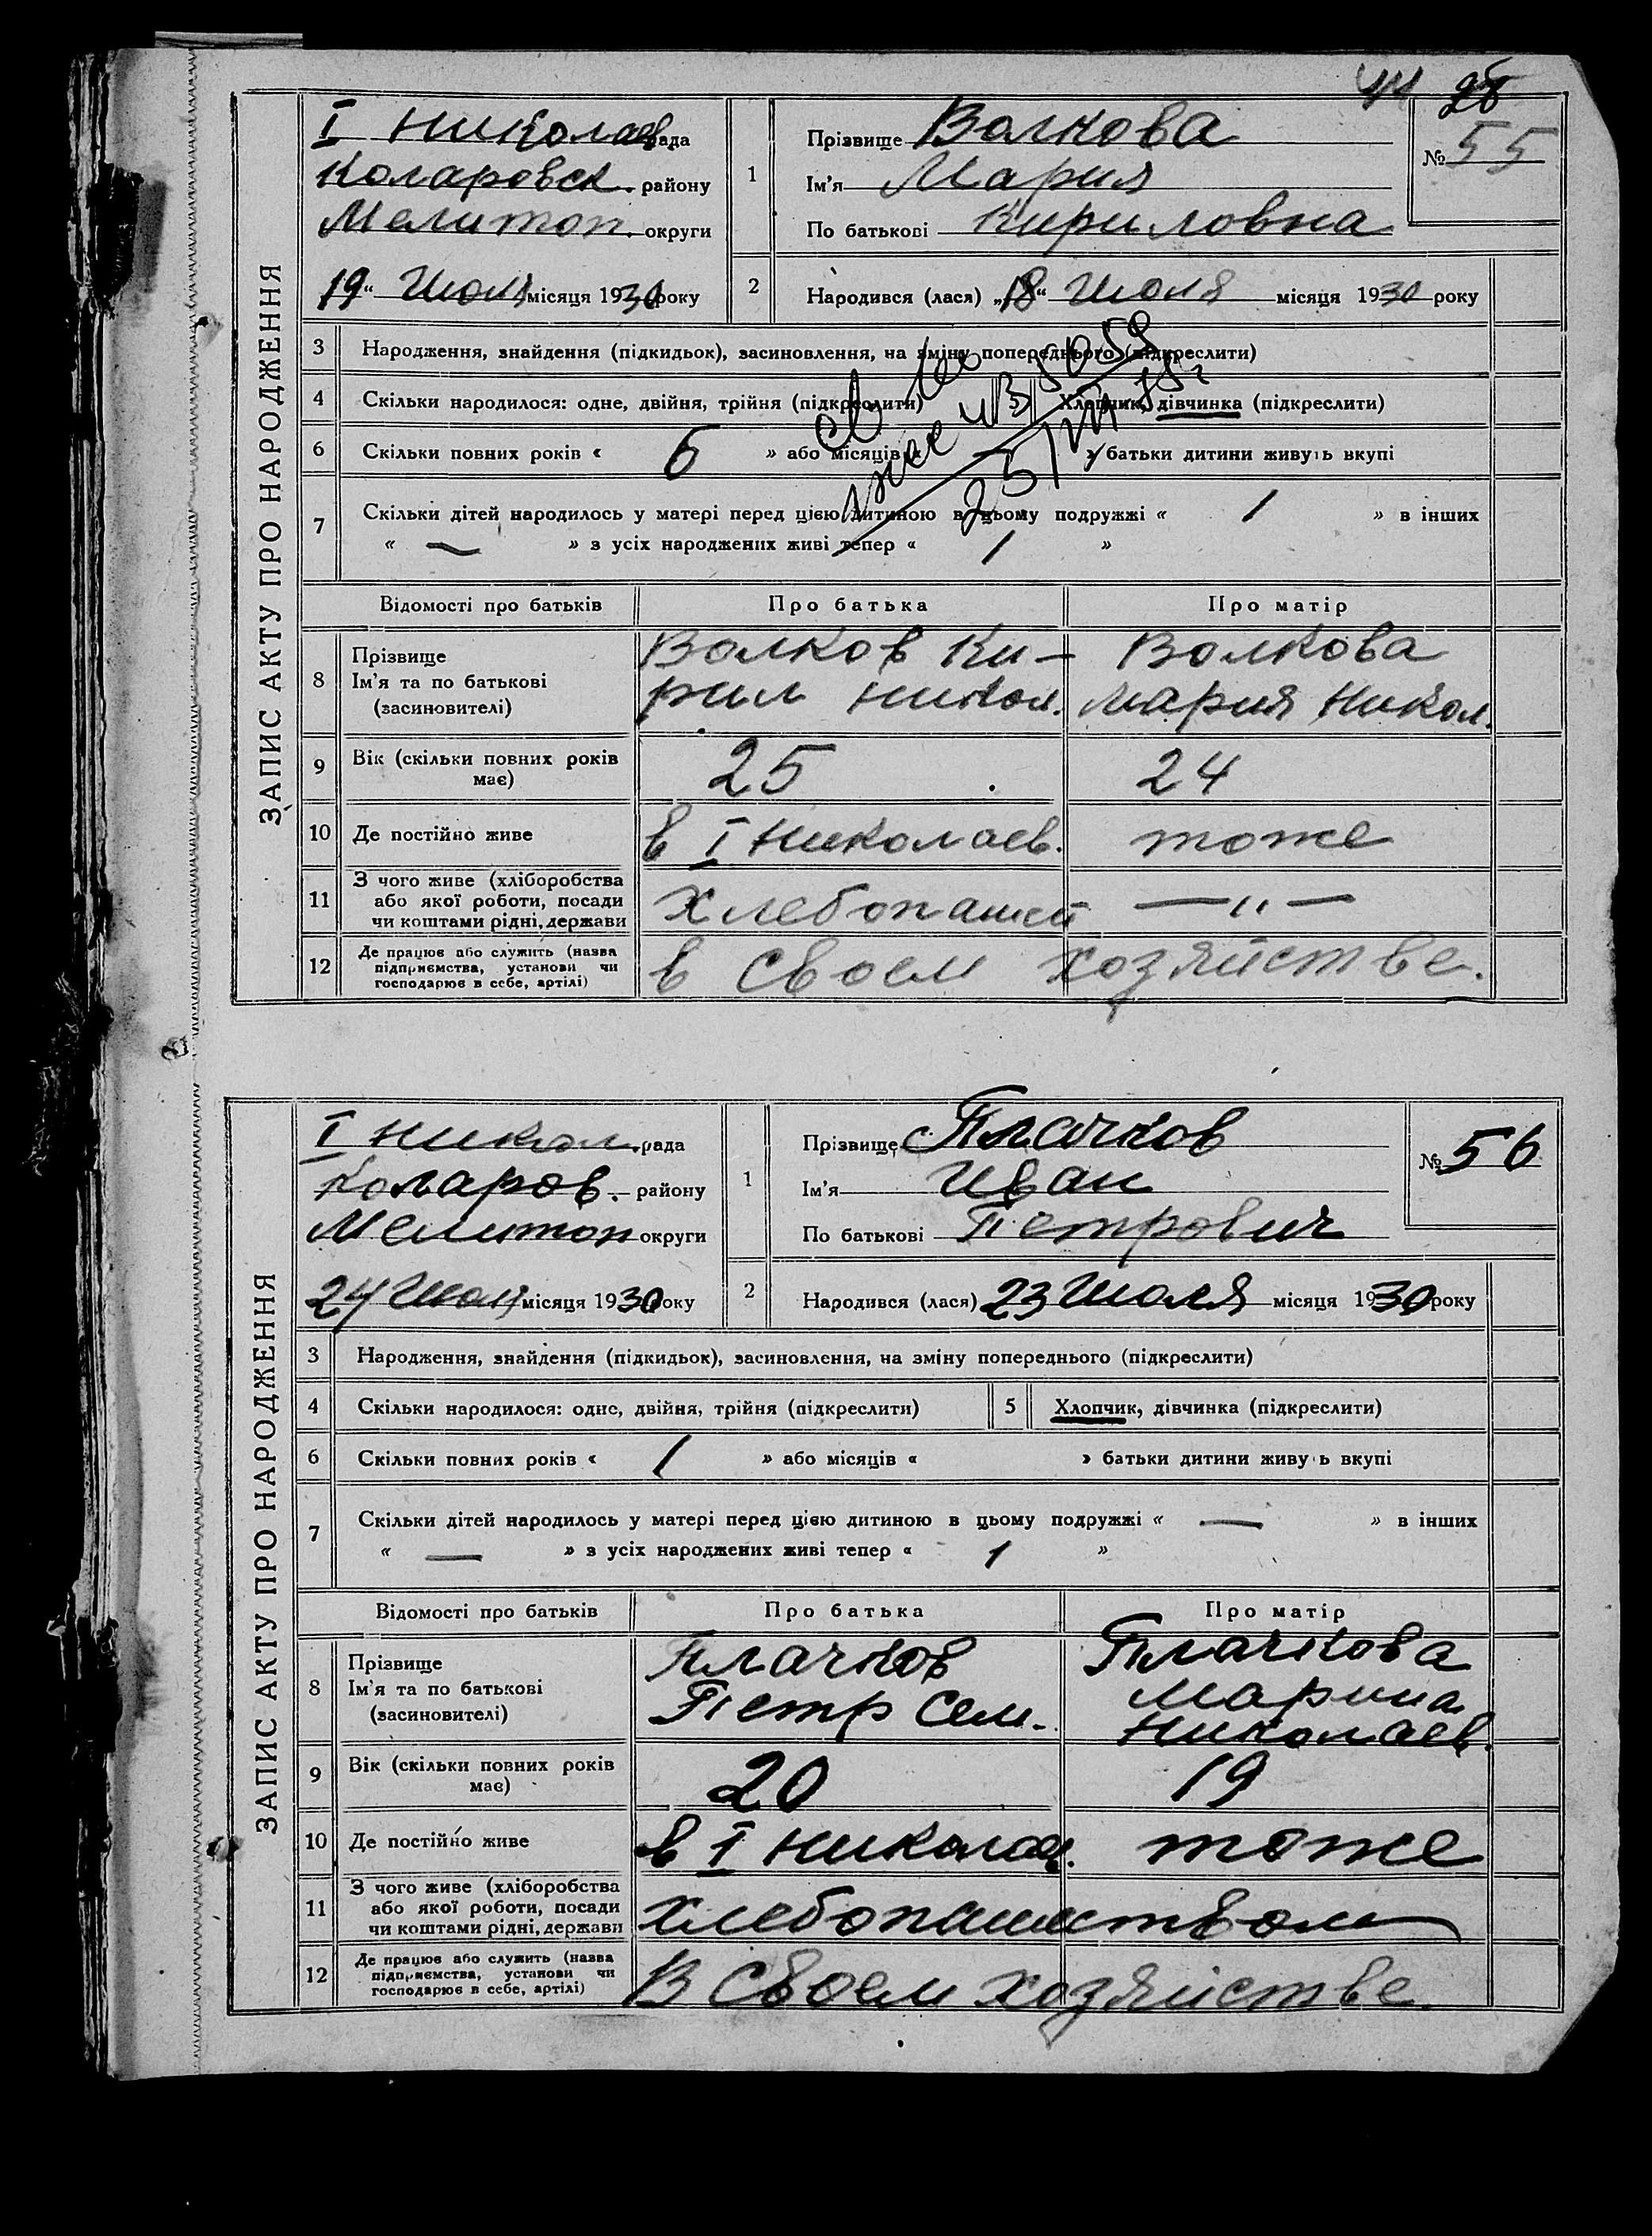 44 28
ЗАПИС АКТУ ПРО НАРОДЖЕННЯ
I Николаев. рада
Коларовск. району
Мелитоп. округи
19 „ Июля місяця 1930 року
1
Прізвище Волкова
Ім'я Мария
По батькові Кириловна
№ 55
2
Народився (лася) „18“ Июля місяця 1930 року
3 Народження, знайдення (підкидьок), засиновлення, на зміну попереднього (підкреслити)
4 Скільки народилося: одне, двійня, трійня (підкреслити) 5 Хлопчик, дівчинка (підкреслити)
6 Скільки повних років « 6 » або місяців « — » батьки дитини живуть вкупі
7 Скільки дітей народилось у матері перед цією дитиною в цьому подружжі « 1 » в інших
« — » з усіх народжених живі тепер « 1 »
Відомості про батьків Про батька Про матір
8 Прізвище Ім'я та по батькові (засиновителі)
Волков Ки- Волкова
рил Никол. Мария Никол.
9 Вік (скільки повних років має) 25 24
10 Де постійно живе в I Николаев. тоже
11 З чого живе (хліборобства або якої роботи, посади чи коштами рідні, держави
Хлебопашеst — „ —
12 Де працює або служить (назва підприємства, установи чи господарює в себе, артілі)
в своем хозяйстве.
ЗАПИС АКТУ ПРО НАРОДЖЕННЯ
I Никол. рада
Коларов. району
Мелитоп округи
24 Июля місяця 1930 року
1
Прізвище Плачков
Ім'я Иван
По батькові Петрович
№ 56
2
Народився (лася) 23 Июля місяця 1930 року
3 Народження, знайдення (підкидьок), засиновлення, на зміну попереднього (підкреслити)
4 Скільки народилося: одне, двійня, трійня (підкреслити) 5 Хлопчик, дівчинка (підкреслити)
6 Скільки повних років « 1 » або місяців « » батьки дитини живуть вкупі
7 Скільки дітей народилось у матері перед цією дитиною в цьому подружжі « — » в інших
« — » з усіх народжених живі тепер « 1 »
Відомості про батьків Про батька Про матір
8 Прізвище Ім'я та по батькові (засиновителі)
Плачков Плачкова
Петр Сем. Марина
Николаев.
9 Вік (скільки повних років має) 20 19
10 Де постійно живе в I Николаев. тоже
11 З чого живе (хліборобства або якої роботи, посади чи коштами рідні, держави
хлебопашеством
12 Де працює або служить (назва підприємства, установи чи господарює в себе, артілі)
В своем хозяйстве.